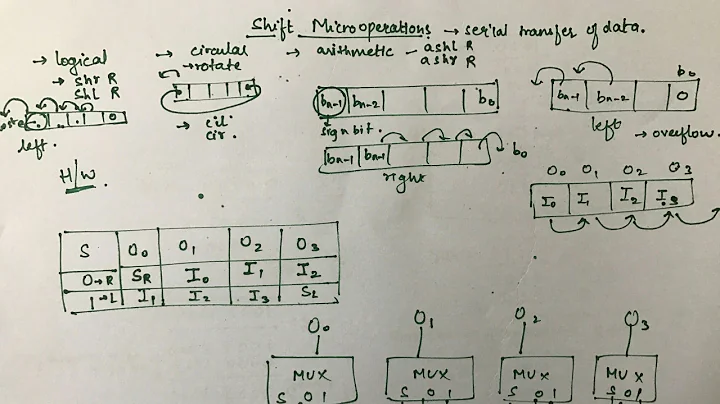 Shift Microoperations → serial transfer of data.
→ logical
→ shr R
shl R
left.
→ circular
→ rotate
→ cil
cir.
→ arithmetic - ashl R
ashr R
bn-1 bn-2 b0
sign bit.
bn-1 bn-1 b0
right
b0
bn-1 bn-2 0
left → overflow.
O0 O1 O2 O3
I0 I1 I2 I3
H/W.
S O0 O1 O2 O3
0→R SR I0 I1 I2
1→L I1 I2 I3 SL
O0 O1 O2 O3
MUX MUX MUX MUX
S 0 1 S 0 1 S 0 1 S 0 1